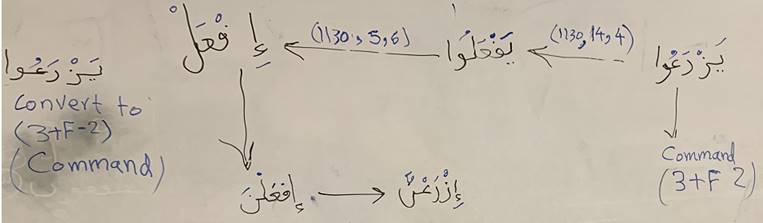 يَزْرَعُوا
Convert to
(3+F-2)
(Command)
إِفْعَلْ
(1130,5,6)
يَفْعَلُوا
(1130,14,4)
يَزْرَعُوا
Command
(3+F 2)
إِفْعَلْنَ
إِزْرَعْنَ